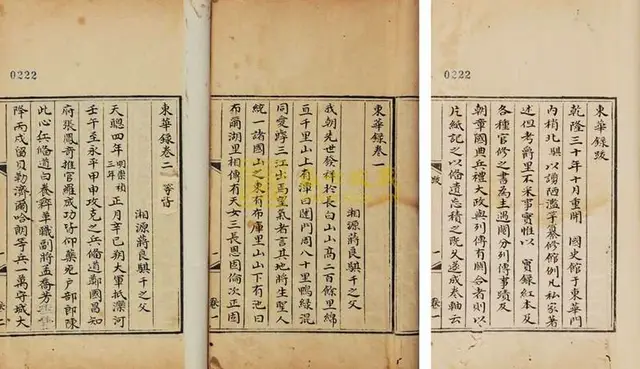 0222
東華錄跋
乾隆三十年十月重開 國史館于東華門
內稍北驥以谫陋濫竽纂修館例凡私家著
述但考爵里不采事實惟以 實錄紅本及
各種官修之書為主遇閱分列傳事蹟及
朝章國典兵禮大政與列傳有關合者則以
片紙記之以備遺忘積之既久遂成卷軸云
跋
東華錄卷一
湘源蔣良騏千之父
我朝先世發祥於長白山山高二百餘里綿
亘千里山上有潭曰闥門周八十里鴨綠混
同愛滹三江出焉望氣者言其地將生聖人
統一諸國山之東有布庫里山山下有池曰
布爾湖里相傳有天女三長恩固倫次正固
卷一
0222
東華錄卷二
湘源蔣良騏千之父
天聰四年 明崇禎三年 正月辛巳朔大軍抵灤河
壬午至永平甲申攻克之兵備道鄭國昌知
府張鳳奇推官羅成功皆仰藥死戶部郎陳
此心兵備道白養粹革職副將孟喬芳
降丙戌留貝勒濟爾哈朗等兵一萬守城大
卷二